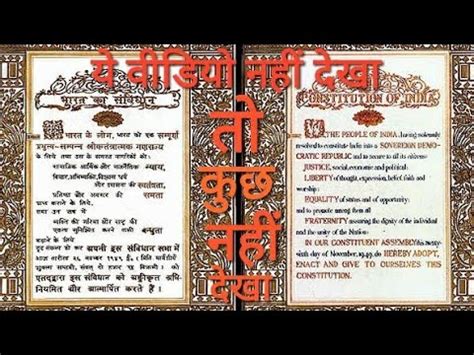 ये वीडियो नहीं देखा
तो
कुछ
नहीं
देखा
भारत का संविधान
भारत के लोग, भारत को एक सम्पूर्ण
के लिये तथा उस के समस्त नागरिकों को
सामाजिक, आर्थिक और राजनैतिक न्याय,
विचार,अभिव्यक्ति, विश्वास, धर्म
और उपासना की स्वतंत्रता,
प्रतिष्ठा और अवसर की समता
प्राप्त कराने के लिये,
तथा उन सब में
व्यक्ति की गरिमा और राष्ट्र की
एकता सुनिश्चित करने वाली बन्धुता
अपनी इस संविधान सभा में
इस संविधान को
और आत्मार्पित करते हैं।
CONSTITUTION OF INDIA
THE PEOPLE OF INDIA, having solemnly
resolved to constitute India into a SOVEREIGN DEMO-
CRATIC REPUBLIC and to secure to all its citizens:
JUSTICE, social, economic and political;
LIBERTY of thought, expression, belief, faith and
worship;
EQUALITY of status and of opportunity;
and to promote among them all
FRATERNITY assuring the dignity of the individual
and the unity of the Nation;
IN OUR CONSTITUENT ASSEMBLY this twenty-
sixth day of November, 1949, do HEREBY ADOPT,
ENACT AND GIVE TO OURSELVES THIS
CONSTITUTION.